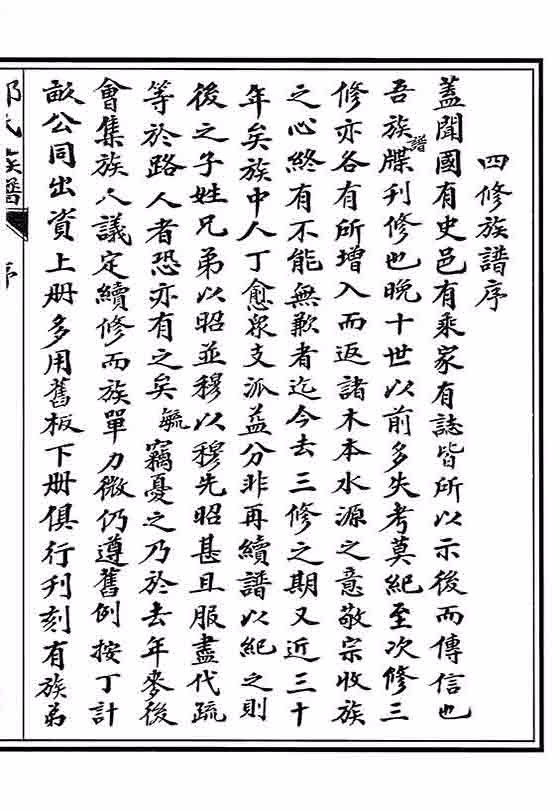 四修族譜序
蓋聞國有史邑有乘家有誌皆所以示後而傳信也
吾族牒譜刊修也晚十世以前多失考莫紀至次修三
修亦各有所增入而返諸木本水源之意敬宗收族
之心終有不能無歉者迄今去三修之期又近三十
年矣族中人丁愈衆支派益分非再續譜以紀之則
後之子姓兄弟以昭並穆以穆先昭甚且服盡代疏
等於路人者恐亦有之矣毓竊憂之乃於去年麥後
會集族人議定續修而族單力微仍遵舊例按丁計
畝公同出資上册多用舊板下册俱行刊刻有族弟
氏族譜
序